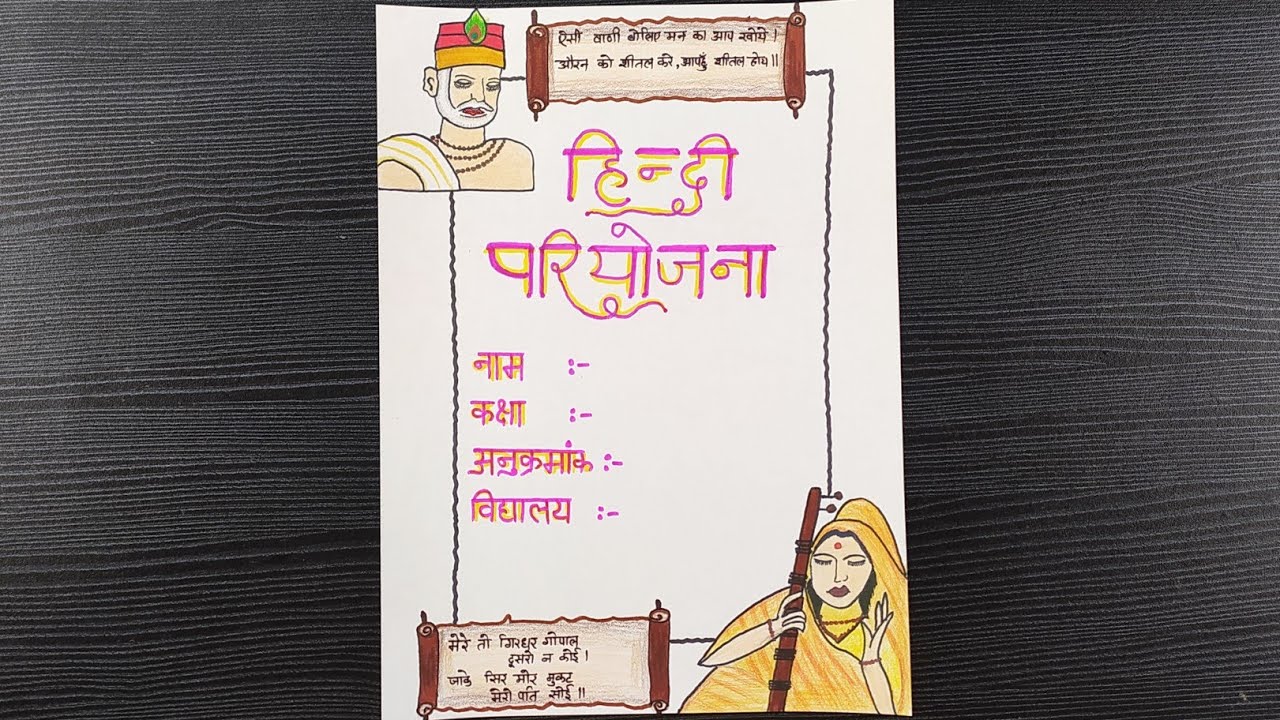 ऐसी वाणी बोलिए मन का आप खोये।
औरन को शीतल करे, आपहुँ शीतल होय॥
हिन्दी
परियोजना
नाम :-
कक्षा :-
अनुक्रमांक :-
विद्यालय :-
मेरे तो गिरधर गोपाल
दूसरो न कोई।
जाके सिर मोर मुकट
मेरो पति सोई॥